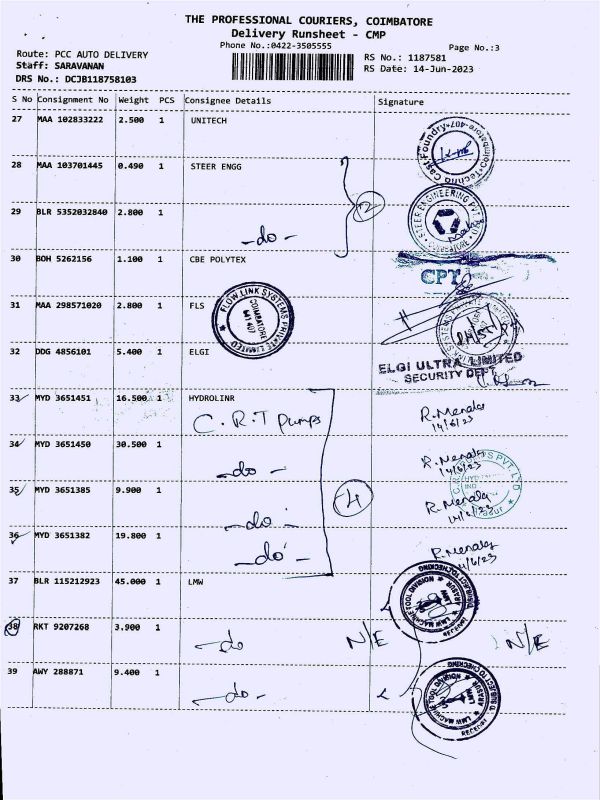 THE PROFESSIONAL COURIERS, COIMBATORE
Delivery Runsheet - CMP
Phone No.:0422-3505555
Page No.:3
Route: PCC AUTO DELIVERY
RS No.: 1187581
Staff: SARAVANAN
RS Date: 14-Jun-2023
DRS No.: DCJB118758103
S No Consignment No Weight PCS Consignee Details Signature
27 MAA 102833222 2.500 1 UNITECH
28 MAA 103701445 0.490 1 STEER ENGG
2
29 BLR 5352032840 2.800 1
-do-
30 BOH 5262156 1.100 1 CBE POLYTEX
CPT
31 MAA 298571020 2.800 1 FLS
FLOW LINK SYSTEMS PRIVATE LIMITED
COIMBATORE
641 407
32 DDG 4856101 5.400 1 ELGI
ELGI ULTRA LIMITED
SECURITY DEPT
33 MYD 3651451 16.500 1 HYDROLINR
C.R.T Pumps
R.Menaka
14/6/23
34 MYD 3651450 30.500 1
-do-
R.Menaka
14/6/23
35 MYD 3651385 9.900 1
-do-
4
R.Menaka
36 MYD 3651382 19.800 1
-do-
R.Menaka
14/6/23
37 BLR 115212923 45.000 1 LMW
38 RKT 9207268 3.900 1
-do N/E N/E
39 AWY 288871 9.400 1
-do-